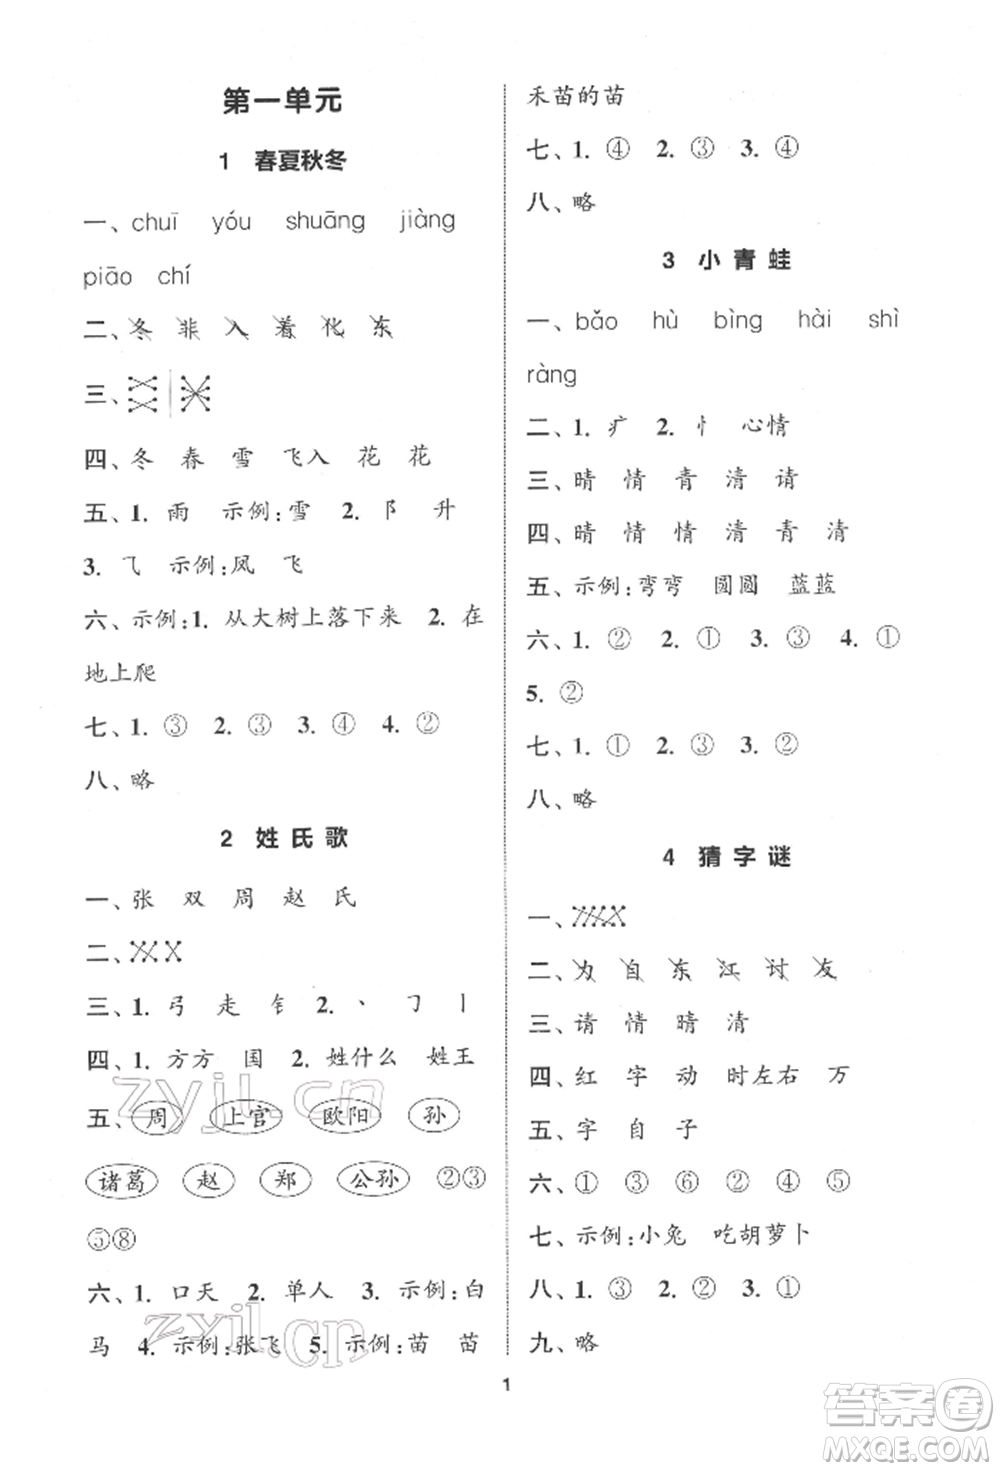 第一单元
1 春夏秋冬
一、chuī yóu shuāng jiàng
piāo chí
二、冬 非 入 着 化 东
三、
四、冬 春 雪 飞入 花 花
五、1. 雨 示例:雪 2. 阝 升
3. 飞 示例:凤 飞
六、示例:1. 从大树上落下来 2. 在
地上爬
七、1. ③ 2. ③ 3. ④ 4. ②
八、略
2 姓氏歌
一、张 双 周 赵 氏
二、
三、1. 弓 走 钅 2. 丶 ㇆ 丨
四、1. 方方 国 2. 姓什么 姓王
五、周 上官 欧阳 孙
诸葛 赵 郑 公孙 ②③
⑤⑧
六、1. 口天 2. 单人 3. 示例:白
马 4. 示例:张飞 5. 示例:苗 苗
禾苗的苗
七、1. ④ 2. ③ 3. ④
八、略
3 小青蛙
一、bǎo hù bìng hài shì
ràng
二、1. 疒 2. 忄 心情
三、晴 情 青 清 请
四、晴 情 情 清 青 清
五、示例:弯弯 圆圆 蓝蓝
六、1. ② 2. ① 3. ③ 4. ①
5. ②
七、1. ① 2. ③ 3. ②
八、略
4 猜字谜
一、
二、为 自 东 江 讨 友
三、请 情 晴 清
四、红 字 动 时左右 万
五、字 自 子
六、① ③ ⑥ ② ④ ⑤
七、示例:小兔 吃胡萝卜
八、1. ③ 2. ② 3. ①
九、略
1
zyjl.cn
zyjl.cn
答案圈
MXQE.COM